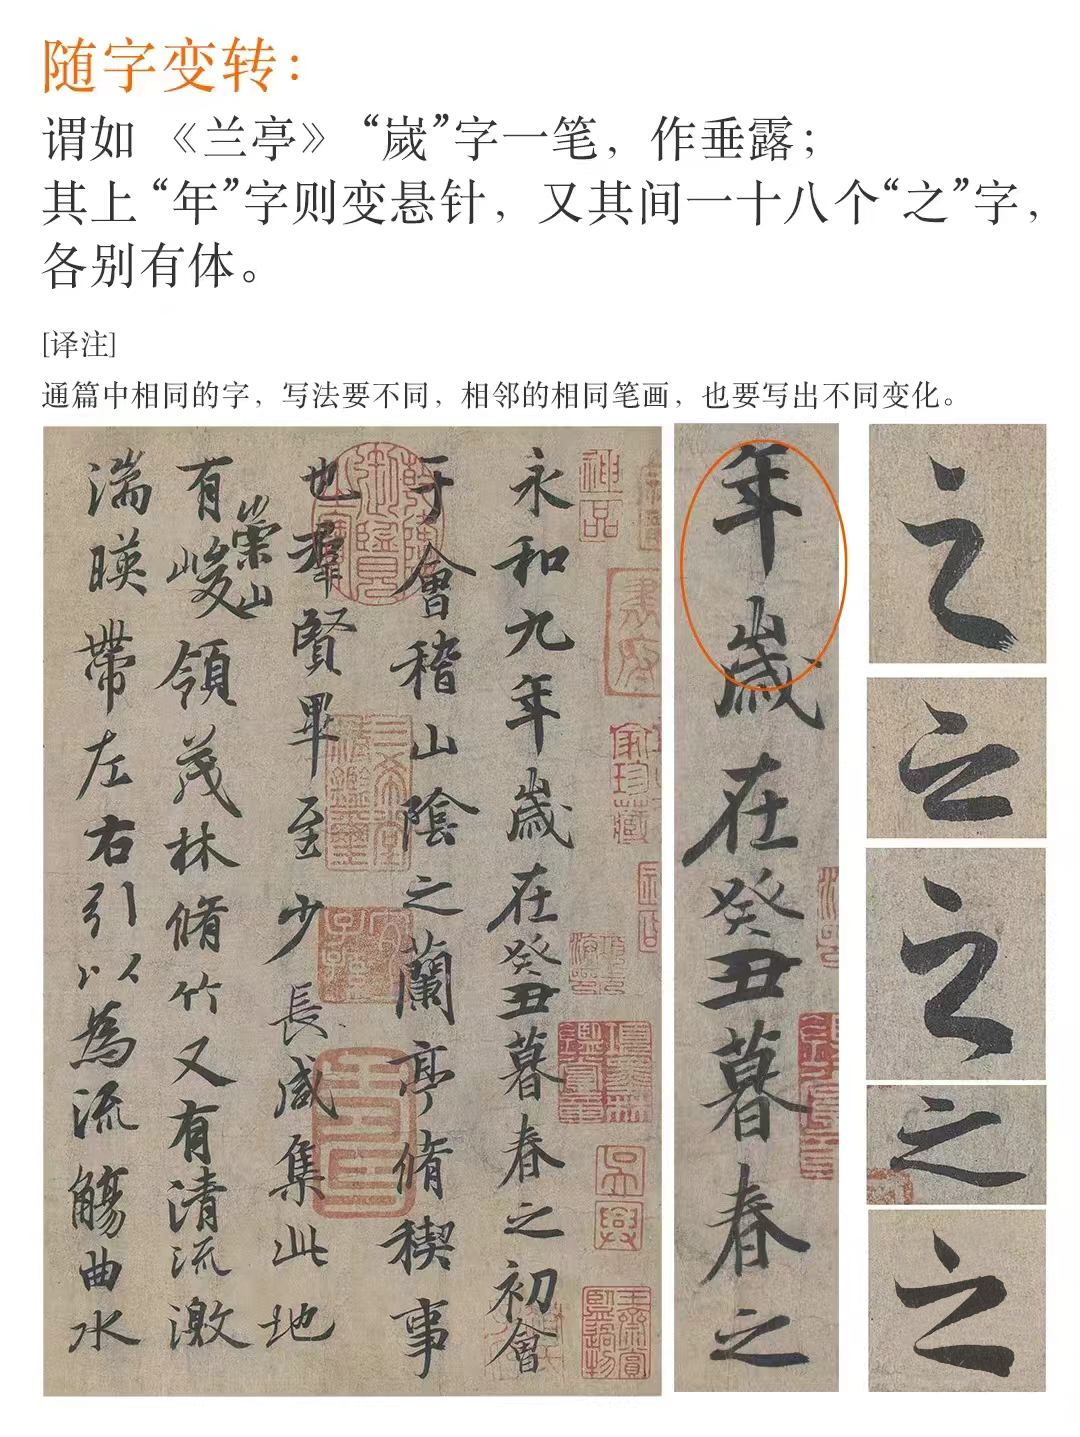 随字变转：
谓如《兰亭》“嵗”字一笔，作垂露；
其上“年”字则变悬针，又其间一十八个“之”字，
各别有体。
[译注]
通篇中相同的字，写法要不同，相邻的相同笔画，也要写出不同变化。
永和九年歲在癸丑暮春之初會
于會稽山陰之蘭亭脩稧事
也羣賢畢至少長咸集此地
有崇山峻領茂林脩竹又有清流激
湍暎帶左右引以為流觴曲水
神品
年歲在癸丑暮春之
之
之
之
之
之